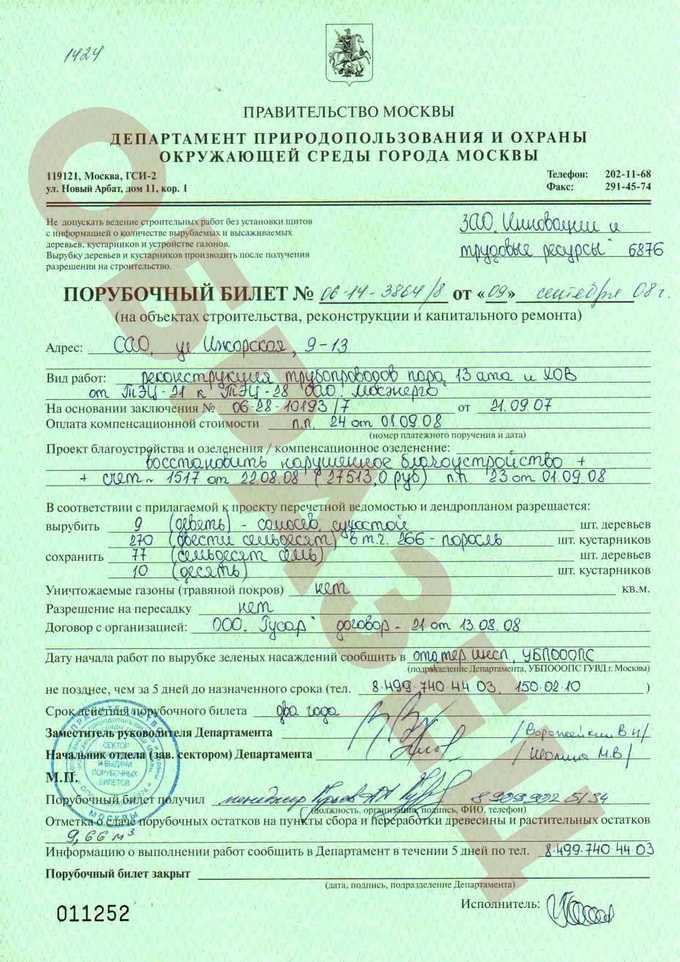 1424
ПРАВИТЕЛЬСТВО МОСКВЫ
ДЕПАРТАМЕНТ ПРИРОДОПОЛЬЗОВАНИЯ И ОХРАНЫ
ОКРУЖАЮЩЕЙ СРЕДЫ ГОРОДА МОСКВЫ
119121, Москва, ГСИ-2 Телефон: 202-11-68
ул. Новый Арбат, дом 11, кор. 1 Факс: 291-45-74
Не допускать ведение строительных работ без установки щитов
с информацией о количестве вырубаемых и высаживаемых
деревьев, кустарников и устройстве газонов.
Вырубку деревьев и кустарников производить после получения
разрешения на строительство.
ЗАО „Инновации и
трудовые ресурсы" 6876
ПОРУБОЧНЫЙ БИЛЕТ № 06-14-3864/8 от «09» сентября 08 г.
(на объектах строительства, реконструкции и капитального ремонта)
Адрес: САО, ул Ижорская, 9-13
Вид работ: реконструкция трубопроводов пара 13 ата и ХОВ
от ТЭЦ-21 к ТЭЦ-28 ОАО „Мосэнерго"
На основании заключения № 06-28-10193/7 от 21.09.07
Оплата компенсационной стоимости п.п. 24 от 01.09.08
(номер платежного поручения и дата)
Проект благоустройства и озеленения / компенсационное озеленение:
восстановить нарушенное благоустройство +
+ счет ~ 1517 от 22.08.08 (27513,0 руб) п/п 23 от 01.09.08
В соответствии с прилагаемой к проекту перечетной ведомостью и дендропланом разрешается:
вырубить 9 (девять) - самосев, сухостой шт. деревьев
270 (двести семьдесят) в т.ч. 266 - поросль шт. кустарников
сохранить 77 (семьдесят семь) шт. деревьев
10 (десять) шт. кустарников
Уничтожаемые газоны (травяной покров) нет кв.м.
Разрешение на пересадку нет
Договор с организацией: ООО „Гусар" договор - 21 от 13.08.08
Дату начала работ по вырубке зеленых насаждений сообщить в УБПОООПС
(подразделение Департамента, УБПОООПС ГУВД г. Москвы)
не позднее, чем за 5 дней до назначенного срока (тел. 8.499.740 44 03, 150.02.10 )
Срок действия порубочного билета два года
Заместитель руководителя Департамента /Воропайкин В.И/
Начальник отдела (зав. сектором) Департамента /Шолина М.В/
М.П.
СЕКТОР
ВЫДАЧИ
ПОРУБОЧНЫХ
БИЛЕТОВ
МОСКВЫ
Порубочный билет получил менеджер
(должность, организация, подпись, ФИО, телефон)
Отметка о сдаче порубочных остатков на пункты сбора и переработки древесины и растительных остатков
9,66 м³
Информацию о выполнении работ сообщить в Департамент в течении 5 дней по тел. 8.499.740 44 03
Порубочный билет закрыт
(дата, подпись, подразделение Департамента)
Исполнитель:
011252
ОБРАЗЕЦ